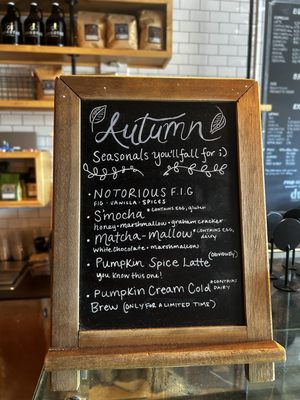 Autumn
Seasonals you'll fall for :)
• NOTORIOUS F.I.G
FIG • VANILLA • SPICES
• S'mocha *CONTAINS EGG, gluten
honey • marshmallow • graham cracker
• Matcha-mallow *CONTAINS EGG, dairy
White Chocolate • marshmallow
• Pumpkin Spice Latte (obviously)
you know this one!
• Pumpkin Cream Cold *CONTAINS DAIRY
Brew (ONLY FOR A LIMITED TIME)